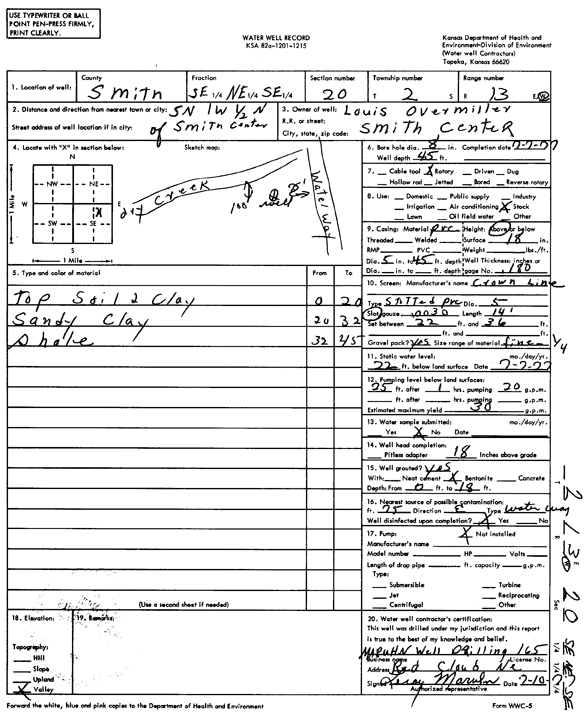 USE TYPEWRITER OR BALL
POINT PEN-PRESS FIRMLY,
PRINT CLEARLY.
WATER WELL RECORD
KSA 82a-1201-1215
Kansas Department of Health and
Environment-Division of Environment
(Water well Contractors)
Topeka, Kansas 66620
1. Location of well:
County
Smith
Fraction
SE 1/4 NE 1/4 SE 1/4
Section number
20
Township number
T 2 S
Range number
R 13 E/W
2. Distance and direction from nearest town or city: 5N 1W 1/2 N
Street address of well location if in city: of Smith Center
3. Owner of well: Louis Overmiller
R.R. or street:
City, state, zip code: Smith Center
4. Locate with "X" in section below:
Sketch map:
N
NW NE
W E
SW SE
X
S
1 Mile
1 Mile
Creek
100'
well
Water Way
5. Type and color of material
From To
Top Soil & Clay 0 20
Sandy Clay 20 32
Shale 32 45
(Use a second sheet if needed)
6. Bore hole dia. 8 in. Completion date 7-7-77
Well depth 45 ft.
7. Cable tool X Rotary Driven Dug
Hollow rod Jetted Bored Reverse rotary
8. Use: Domestic Public supply Industry
Irrigation Air conditioning X Stock
Lawn Oil field water Other
9. Casing: Material pvc Height: Above or below
Threaded Welded Surface 18 in.
RMP PVC Weight lbs./ft.
Dia. 5 in. to 45 ft. depth Wall Thickness: inches or
Dia. in. to ft. depth gage No. .180
10. Screen: Manufacturer's name Crown Line
Type Slotted pvc Dia. 5
Slot/gauze .0030 Length 14'
Set between 22 ft. and 36 ft.
ft. and ft.
Gravel pack? yes Size range of material fine 1/4
11. Static water level: mo./day/yr.
22 ft. below land surface Date 7-7-77
12. Pumping level below land surfaces:
25 ft. after 1 hrs. pumping 20 g.p.m.
ft. after hrs. pumping g.p.m.
Estimated maximum yield 30 g.p.m.
13. Water sample submitted: mo./day/yr.
Yes X No Date
14. Well head completion:
Pitless adapter 18 Inches above grade
15. Well grouted? yes
With: Neat cement X Bentonite Concrete
Depth: From 0 ft. to 18 ft.
16. Nearest source of possible contamination:
ft. 75 Direction E Type water way
Well disinfected upon completion? X Yes No
17. Pump: X Not installed
Manufacturer's name
Model number HP Volts
Length of drop pipe ft. capacity g.p.m.
Type:
Submersible Turbine
Jet Reciprocating
Centrifugal Other
18. Elevation:
19. Remarks:
Topography:
Hill
Slope
Upland
X Valley
20. Water well contractor's certification:
This well was drilled under my jurisdiction and this report
is true to the best of my knowledge and belief.
Well Drilling 165
Business name License No.
Address Red Cloud Ne
Signed Date
Authorized representative
Forward the white, blue and pink copies to the Department of Health and Environment
Form WWC-5